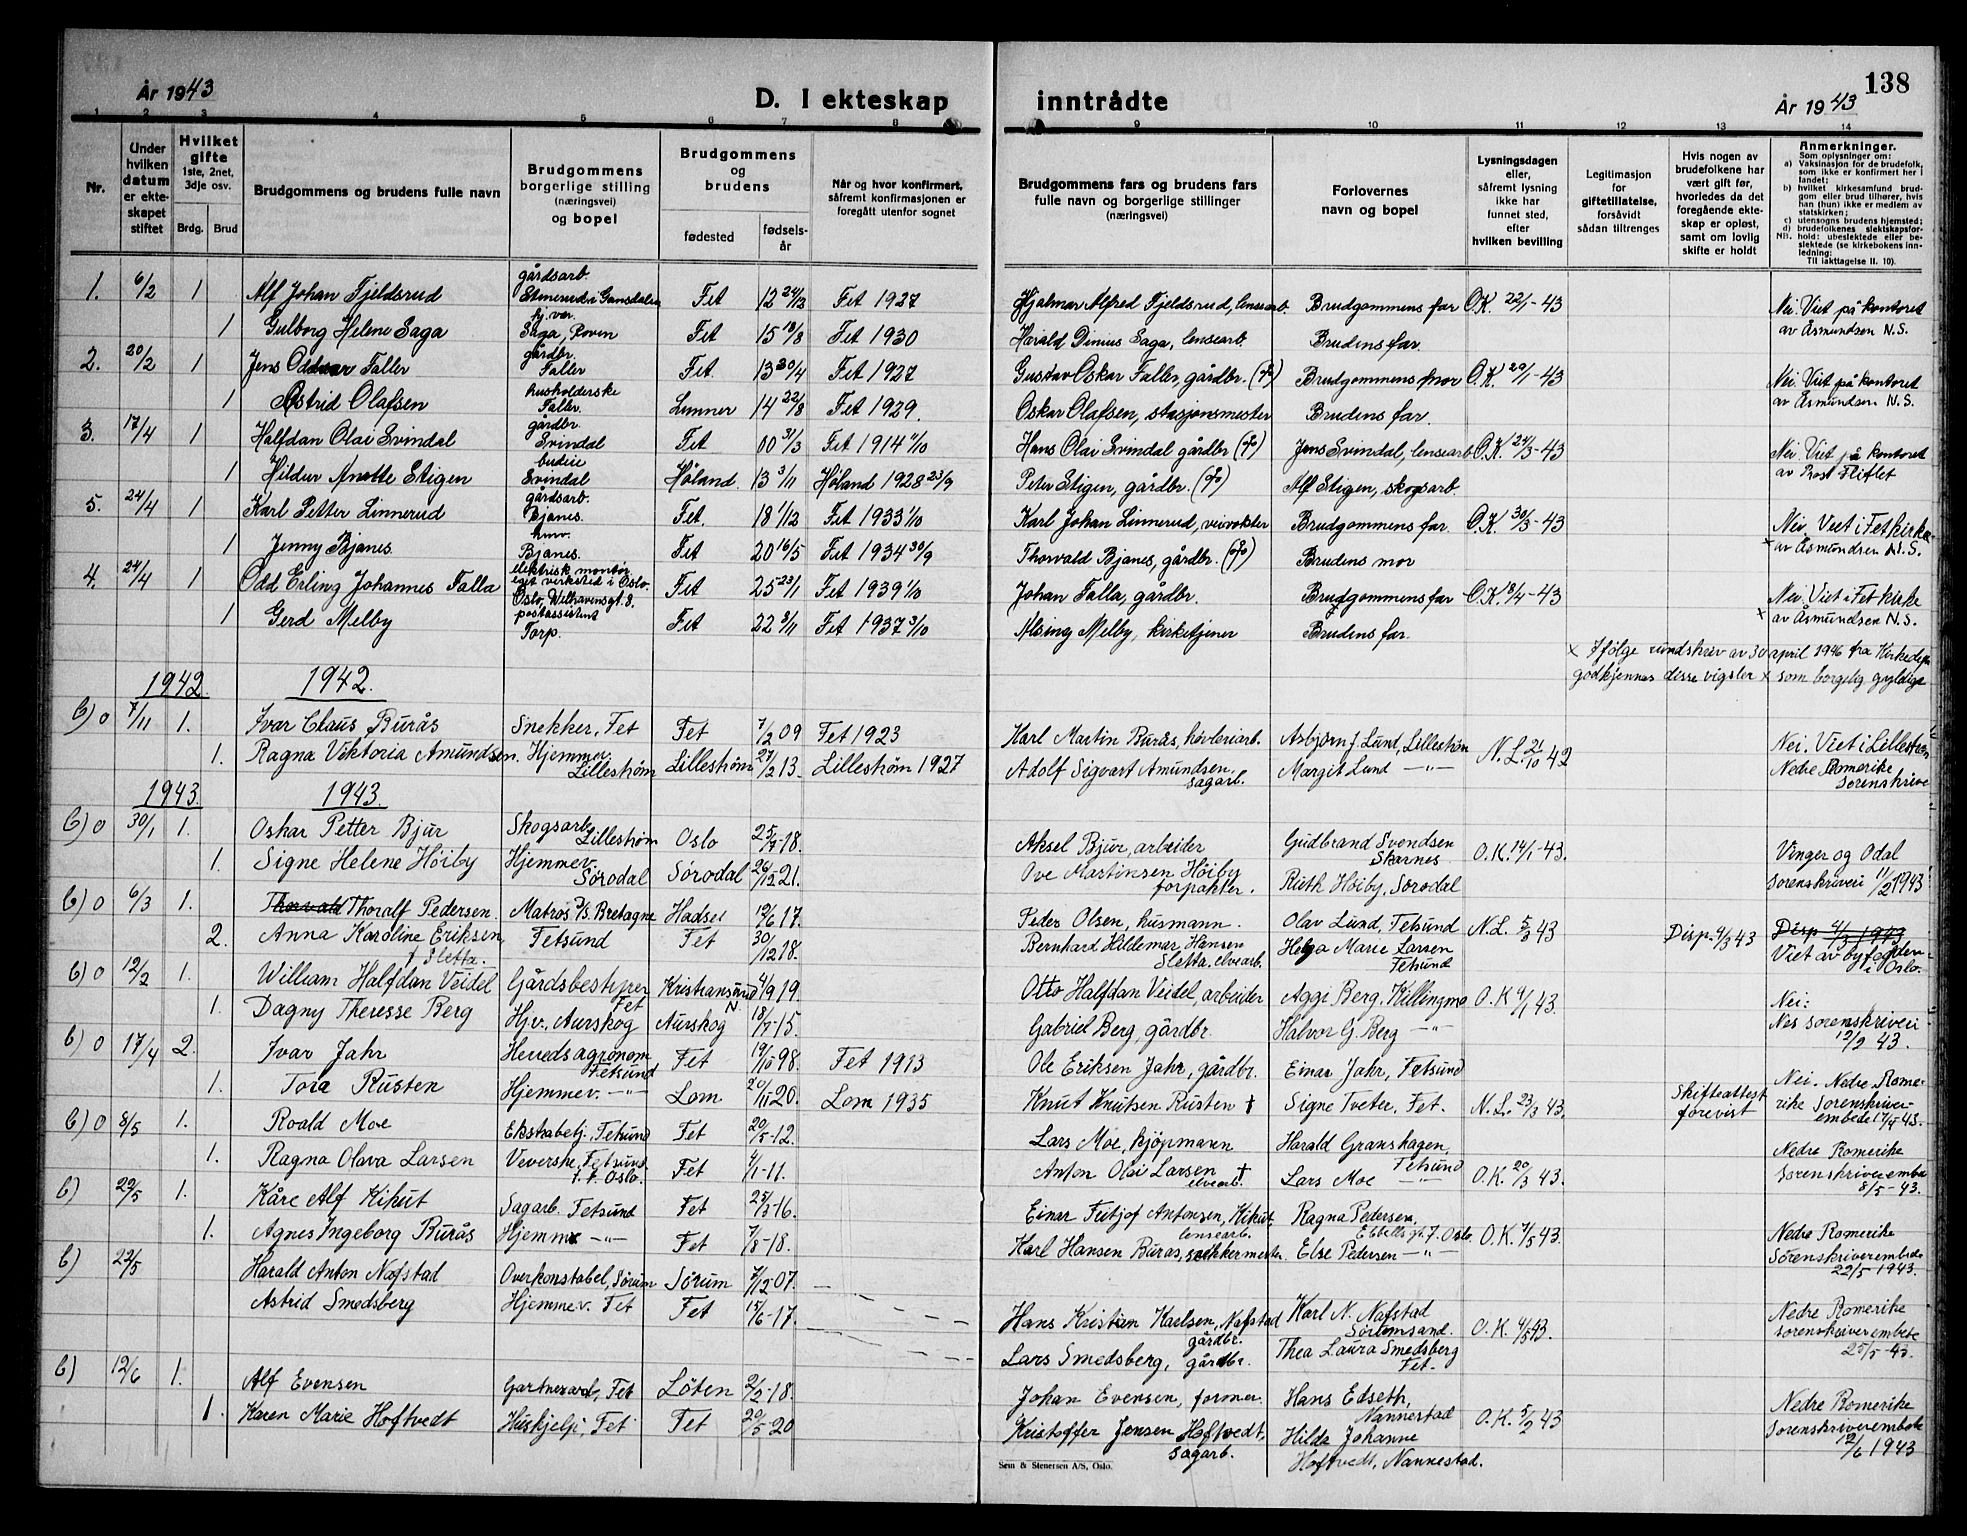 138
År 1943
D. I ekteskap inntrådte
År 1943
1 2 3 4 5 6 7 8 9 10 11 12 13 14
Nr.
Under hvilken datum er ekteskapet stiftet
Hvilket gifte 1ste, 2net, 3dje osv.
Brdg. Brud
Brudgommens og brudens fulle navn
Brudgommens borgerlige stilling (næringsvei) og bopel
Brudgommens og brudens
fødested fødselsår
Når og hvor konfirmert, såfremt konfirmasjonen er foregått utenfor sognet
Brudgommens fars og brudens fars fulle navn og borgerlige stillinger (næringsvei)
Forlovernes navn og bopel
Lysningsdagen eller, såfremt lysning ikke har funnet sted, efter hvilken bevilling
Legitimasjon for giftetillatelse, forsåvidt sådan tiltrenges
Hvis nogen av brudefolkene har vært gift før, hvorledes da det foregående ekteskap er opløst, samt om lovlig skifte er holdt
Anmerkninger.
Som oplysninger om:
a) Vaksinasjon for de brudefolk, som ikke er konfirmert her i landet;
b) hvilket kirkesamfund brudgom eller brud tilhører, hvis han (hun) ikke er medlem av statskirken;
c) utensogns brudens hjemsted;
d) brudefolkenes slektskapsforhold: ubeslektede eller beslektede (se kirkebokens innledning:
NB.
Til iakttagelse II. 10).
1. 6/2 1 Alf Johan Fjeldsrud gårdsarb. Fet 12 24/2 Fet 1927 Hjalmar Alfred Fjeldsrud, lensearb. Brudgommens far O.K. 22/1-43 Nei. Viet på kontoret
1 Gulborg Helene Saga Saga, Roven Fet 15 18/8 Fet 1930 Harald Dinius Saga, lensearb. Brudens far. av Åsmundsen N.S.
2. 20/2 1 Jens Oddvar Faller gårdbr. Faller Fet 13 30/4 Fet 1927 Gustav Oskar Faller, gårdbr. Brudgommens mor O.K. 29/1-43 Nei. Viet på kontoret
1 Astrid Olafsen husholderske Faller. Lunner 14 22/8 Fet 1929. Oskar Olafsen, stasjonsmester Brudens far. av Åsmundsen N.S.
3. 17/4 1 Halfdan Olai Svindal gårdbr. Svindal Fet 00 3/3 Fet 1914 Hans Olai Svindal gårdbr Jens Svindal, lensearb O.K. 24/3-43 Nei. Viet på kontoret
1 Hildur Anette Stigen budeie Svindal Høland 13 3/11 Høland 1928 23/9 Peter Stigen, gårdbr. Alf Stigen, skogsarb. av Prost Fliflet
5. 24/4 1 Karl Petter Linnerud gårdsarb. Bjanes. Fet. 18 1/12 Fet 1933 1/10 Karl Johan Linnerud, veivokter Brudgommens far O.K. 30/3-43 Nei. Viet i Fet kirke
1 Jenny Bjanes Bjanes. Fet 20 16/5 Fet 1934 30/9 Thorvald Bjanes, gårdbr. Brudens mor × av Åsmundsen N.S.
4. 24/4 1 Odd Erling Johannes Falla elektrisk montør eget verksted i Oslo. Oslo, Welhavensgt. 8. Fet 25 23/1 Fet 1939 1/10 Johan Falla, gårdbr. Brudgommens far O.K. 18/4-43 Nei. Viet i Fet kirke
1 Gerd Melby postassistent Torp. Fet 22 8/11 Fet 1937 3/10 Alsing Melby, kirketjener Brudens far. × av Åsmundsen N.S.
× Ifølge rundskriv av 30 april 1946 fra Kirkedep.
godkjennes disse vigsler × som borgelig gyldige
1942 1942.
b) 0 7/11 1. Ivar Claus Burås Snekker, Fet Fet 7/2 09 Fet 1923 Karl Martin Burås, høvleriarb. Asbjørn J. Lund, Lillestrøm N.L. 21/10 42 Nei. Viet i Lillestrøm
1. Ragna Viktoria Amundsen. Hjemmev. Lillestrøm Lillestrøm 27/2 13. Lillestrøm 1927 Adolf Sigvart Amundsen sagarb. Margit Lund —"— Nedre Romerike Sorenskrive
1943 1943.
b) 0 30/1 1. Oskar Petter Bjur Skogsarb. Lillestrøm Oslo 25/7-18. Aksel Bjur, arbeider Gudbrand Svendsen Skarnes O.K. 14/1-43. Vinger og Odal
1. Signe Helene Höiby Hjemmev. Sørodal Sørodal 26/12 21. Ove Martinsen Höiby forpakter. Ruth Höiby, Sørodal Sorenskriveri 11/2 1943
b) 0 6/3 1. Thoralf Pedersen. Matros D/S. Bretagne Hadsel 12/6 17. Peder Olsen, husmann. Olav Lund, Fetsund N.L. 5/3 43 Disp. 4/3 43 Disp 4/3 1943
2. Anna Karoline Eriksen, f Sletta. Fetsund Fet 30/12 18. Bernhard Hildemar Hansen Sletta, elvearb. Helga Marie Larsen Fetsund Viet av byfogden i Oslo.
b) 0 12/2 1. William Halfdan Veidel Gårdsbestyrer Fet Kristiansund N 4/9 19. Otto Halfdan Veidel, arbeider Aggi Berg, Killingmo O.K 9/1 43. Nei:
1. Dagny Theresse Berg Hjv., Aurskog Aurskog 18/7-15. Gabriel Berg, gårdbr. Halvor G. Berg —"— Nes sorenskriveri 12/2 43.
b) 0 17/4 2. Ivar Jahr Herredsagronom Fetsund Fet 19/10 98. Fet 1913 Ole Eriksen Jahr, gårdbr. Einar Jahr, Fetsund Nei. Nedre Rome-
1. Tora Rusten Hjemmev. —"— Lom 20/11 20. Lom 1935 Knut Knutsen Rusten † Signe Tveter, Fet. N.L. 23/3 43. Skifteattest forevist rike Sorenskriver- embede 17/4-43.
b) 0 8/5 1. Roald Moe Ekstrabetj., Fetsund Fet 20/5-12. Lars Moe, kjöpmann Harald Granshagen, Fetsund Nedre Romerike
1. Ragna Olava Larsen Veverske, Fetsund f. t. Oslo. Fet 4/1-11. Anton Olai Larsen † elvearb. Lars Moe —"— O.K. 20/3 43. Sorenskriverembe 8/5-43.
b) 22/5 1. Kåre Alf Kihut Sagarb. Fetsund Fet 25/3-16. Einar Fritjof Antonsen, Kihut lensearb. Ragna Pedersen, gt. 7. Oslo. O.K. 7/5 43. Nedre Romerike
1. Agnes Ingeborg Burås Hjemmev —"— Fet 7/8-18. Karl Hansen Burås, snekkermester Else Pedersen —"— Sörenskriverembede 22/5 1943.
b) 22/5 Harald Anton Nafstad Overkonstabel, Sörum Sörum 7/12 07. Hans Kristian Karlsen, Nafstad gårdbr. Karl N. Nafstad Sörumsand. O.K. 4/5 43. Nedre Romerike
Astrid Smedsberg Hjemmev. Fet Fet 15/6-17. Lars Smedsberg, gårdbr. Thea Laura Smedsberg Fet. Sorenskriverembede 25/5-43.
b) 12/6 1. Alf Evensen Gartnerarb, Fet Löten 2/2-18. Johan Evensen, former. Hans Edseth, Nannestad O.K. 5/2 43 Nedre Romerike
1. Karen Marie Hoftvedt Huskjelp, Fet Fet 20/5-20 Kristoffer Jensen Hoftvedt, sagarb. Hilda Johanne Hoftvedt, Nannestad. Sorenskriverembete 12/6 1943
Sem & Stenersen A/S, Oslo.